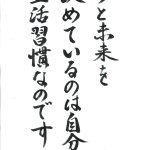 と未来を
めているのは自分
活習慣なのです